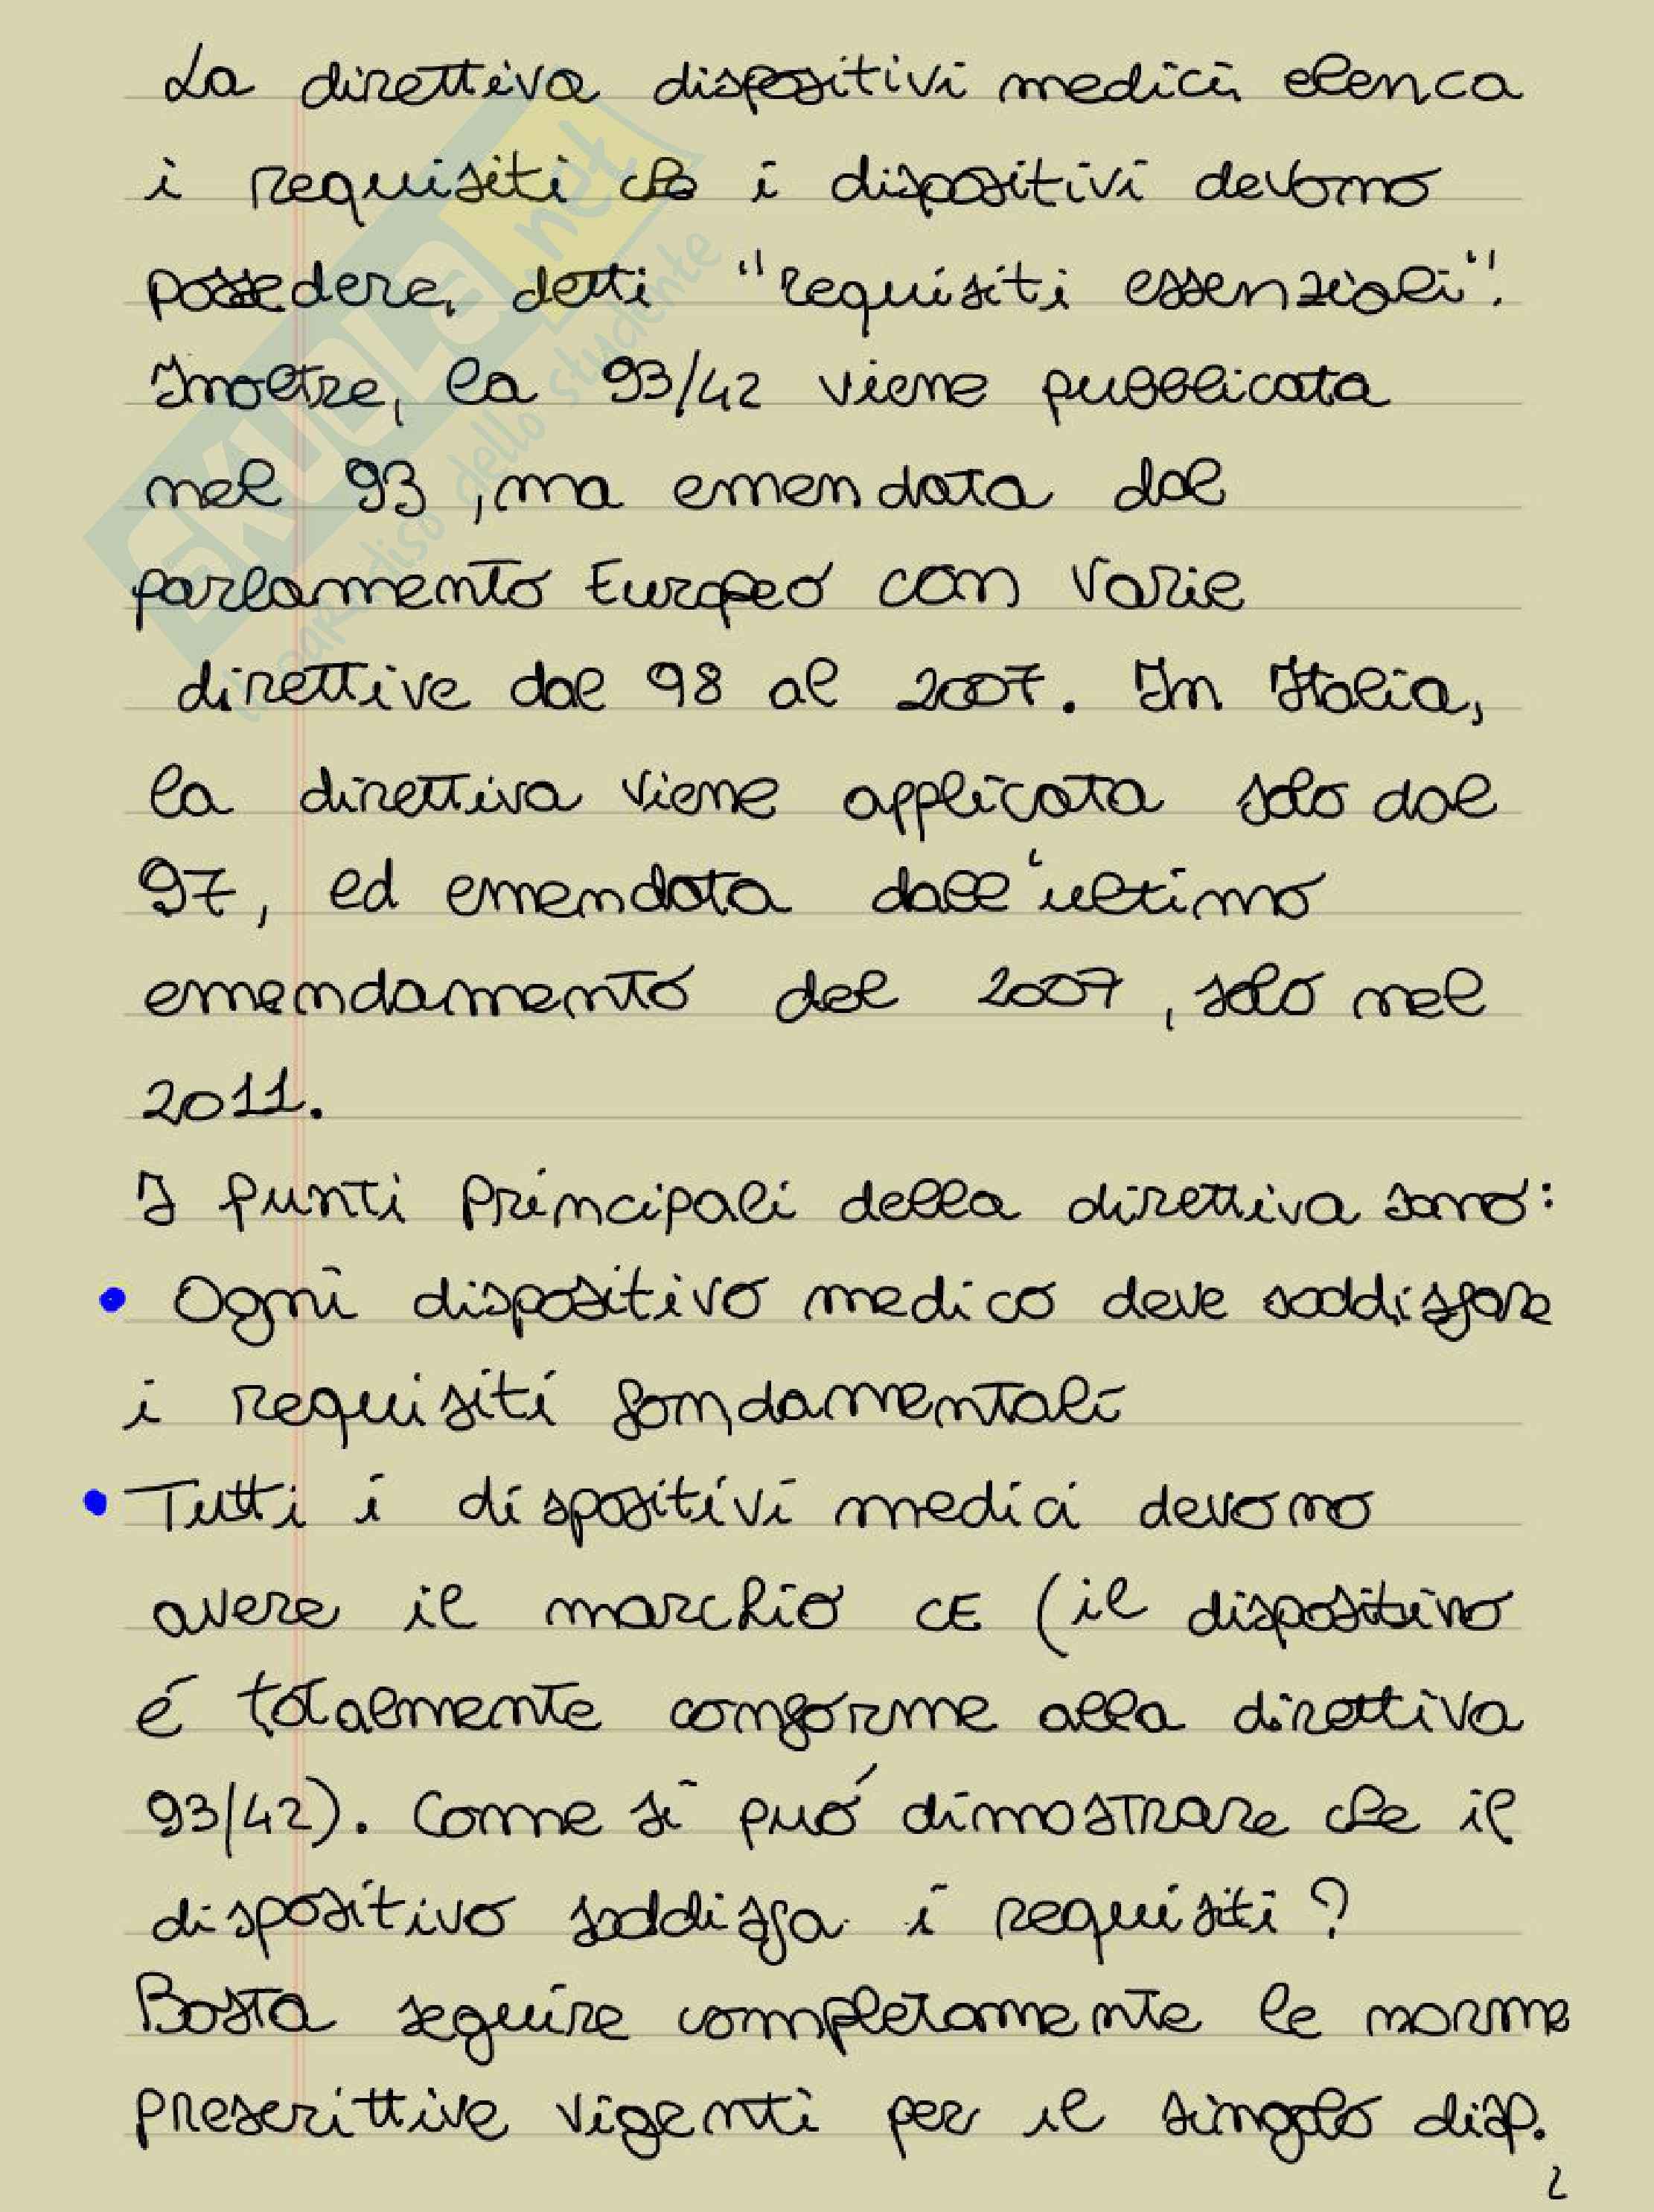 La direttiva dispositivi medici elenca
i requisiti che i dispositivi devono
possedere, detti "requisiti essenziali".
Inoltre, la 93/42 viene pubblicata
nel 93, ma emendata dal
parlamento Europeo con varie
direttive dal 98 al 2007. In Italia,
la direttiva viene applicata solo dal
97, ed emendata dall'ultimo
emendamento del 2007, solo nel
2011.
I punti principali della direttiva sono:
• Ogni dispositivo medico deve soddisfare
i requisiti fondamentali
• Tutti i dispositivi medici devono
avere il marchio CE (il dispositivo
é totalmente conforme alla direttiva
93/42). Come si puó dimostrare che il
dispositivo soddisfa i requisiti?
Basta seguire completamente le norme
prescrittive vigenti per il singolo disp.
2
SKUOLA.net
il paradiso dello studente